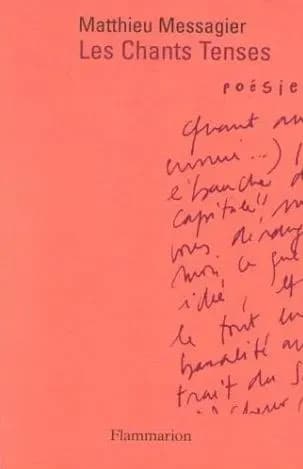 Matthieu Messagier
Les Chants Tenses
poésie
Quant au
ennui...)
l'ébaucher d
capitule"
vous dérang
moi ce que
idée, et
le tout en
banalité au
trait du s
Flammarion